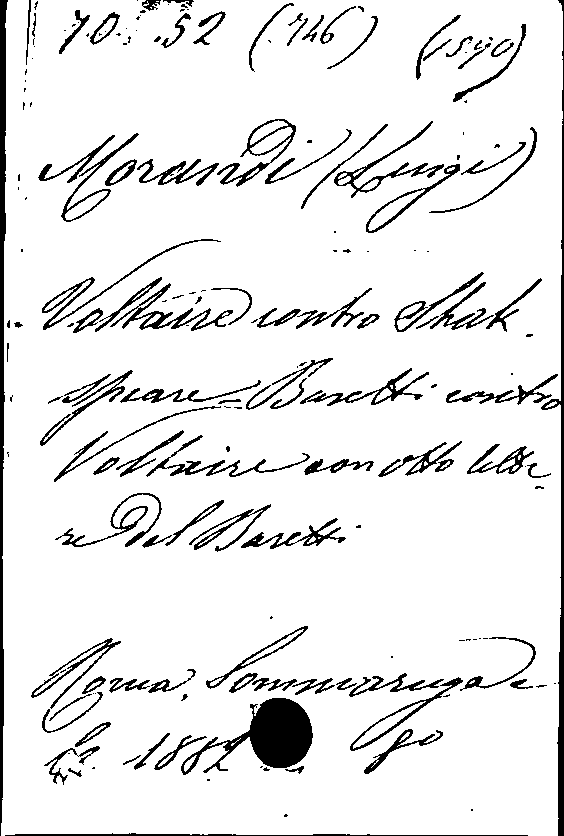 70. .52 (746) (1590)
Morandi (Luigi)
Voltaire contro Shak-
speare = Baretti contro
Voltaire con otto lette-
re del Baretti
Roma, Sommaruga e
1882 80